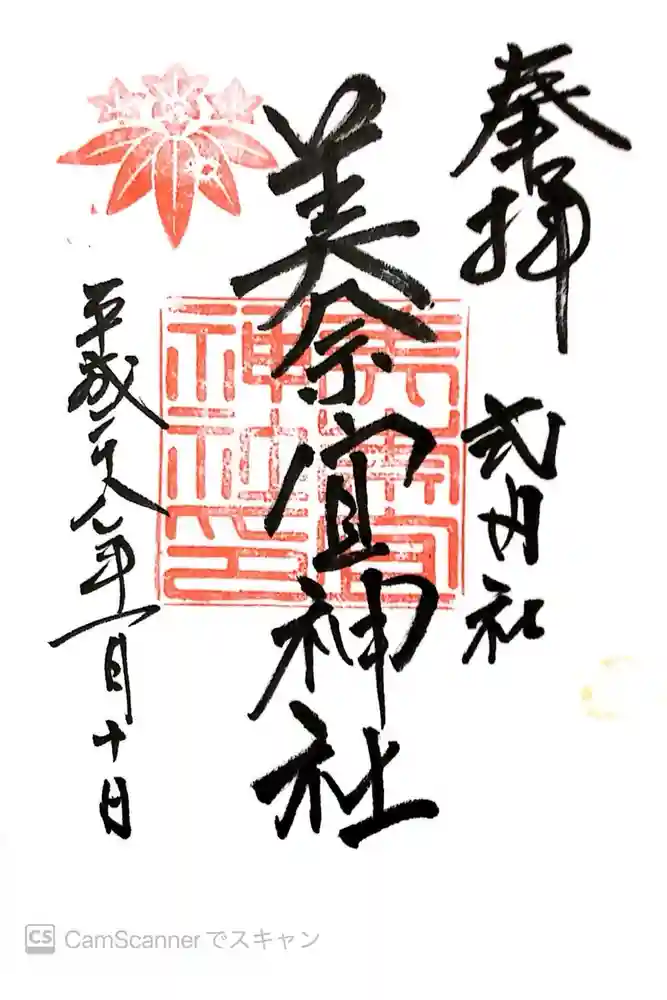 奉拝
式内社
美奈宜神社
美奈宜神社印
平成二十八年一月十日
CS CamScanner でスキャン